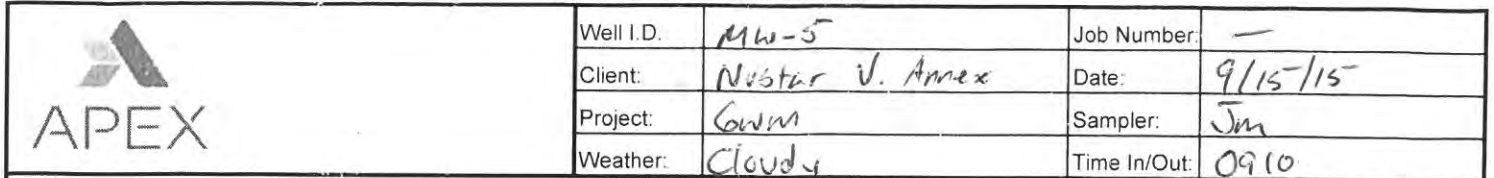 APEX
Well I.D. MW-5 Job Number: —
Client: Nustar V. Annex Date: 9/15/15
Project: GWM Sampler: Jm
Weather: Cloudy Time In/Out: 0910